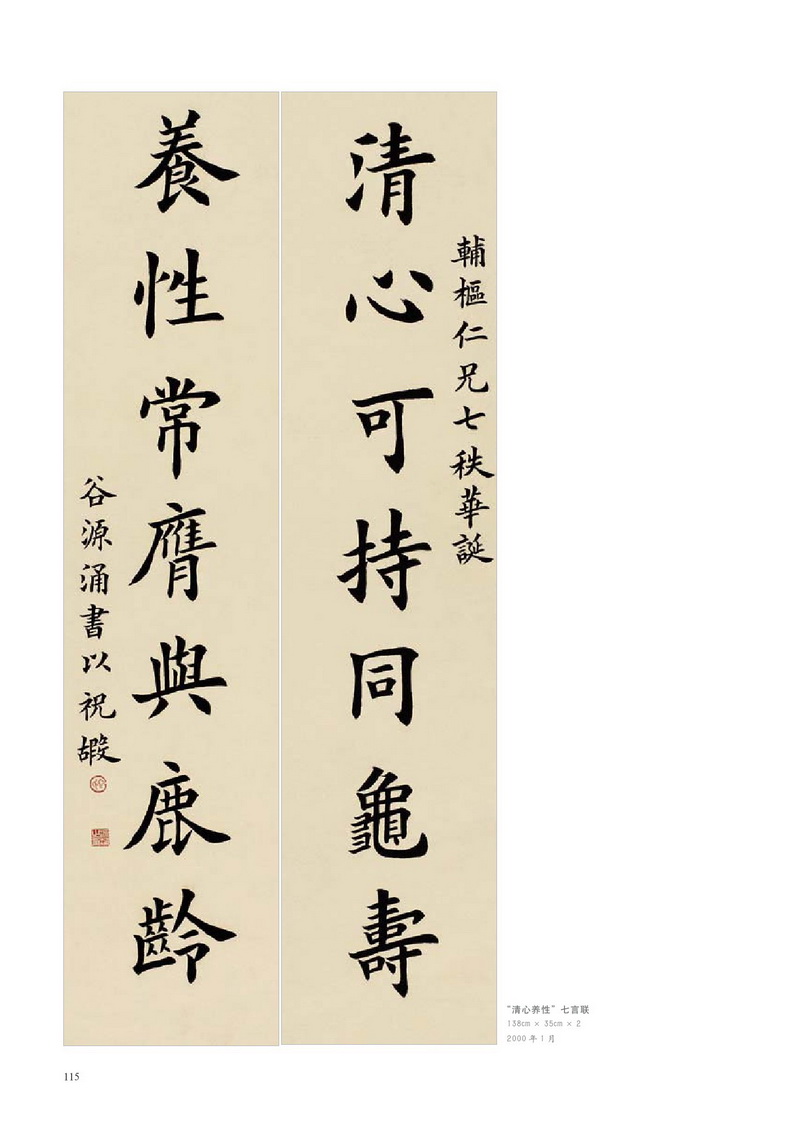 輔樞仁兄七秩華誕
清心可持同龜壽
養性常膺與鹿齡
谷源涌書以祝嘏
“清心养性”七言联
138cm × 35cm × 2
2000 年 1 月
115